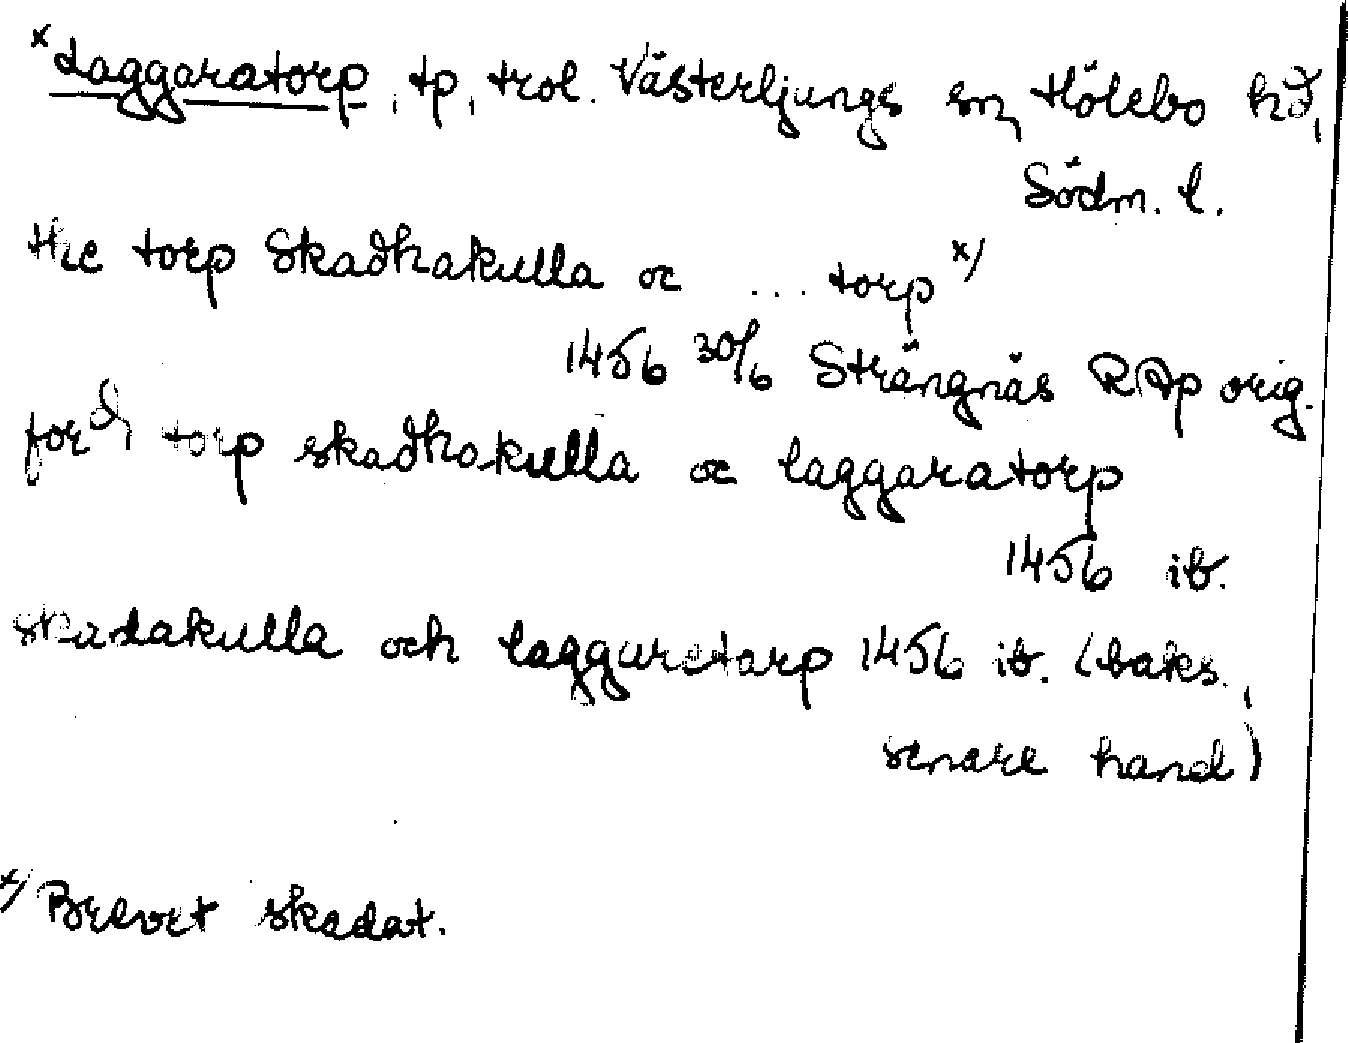 x Laggaratorp, tp, trol. Västerljungs sn, Hölebo hd,
Södm. l.
thre torp Skadhakulla oc ... torp x/
1456 30/6 Strängnäs RAp orig.
for:d torp skadhakulla oc laggaratorp
1456 ib.
skadakulla och laggaretorp 1456 ib. (baks.,
senare hand)
x/ Brevet skadat.